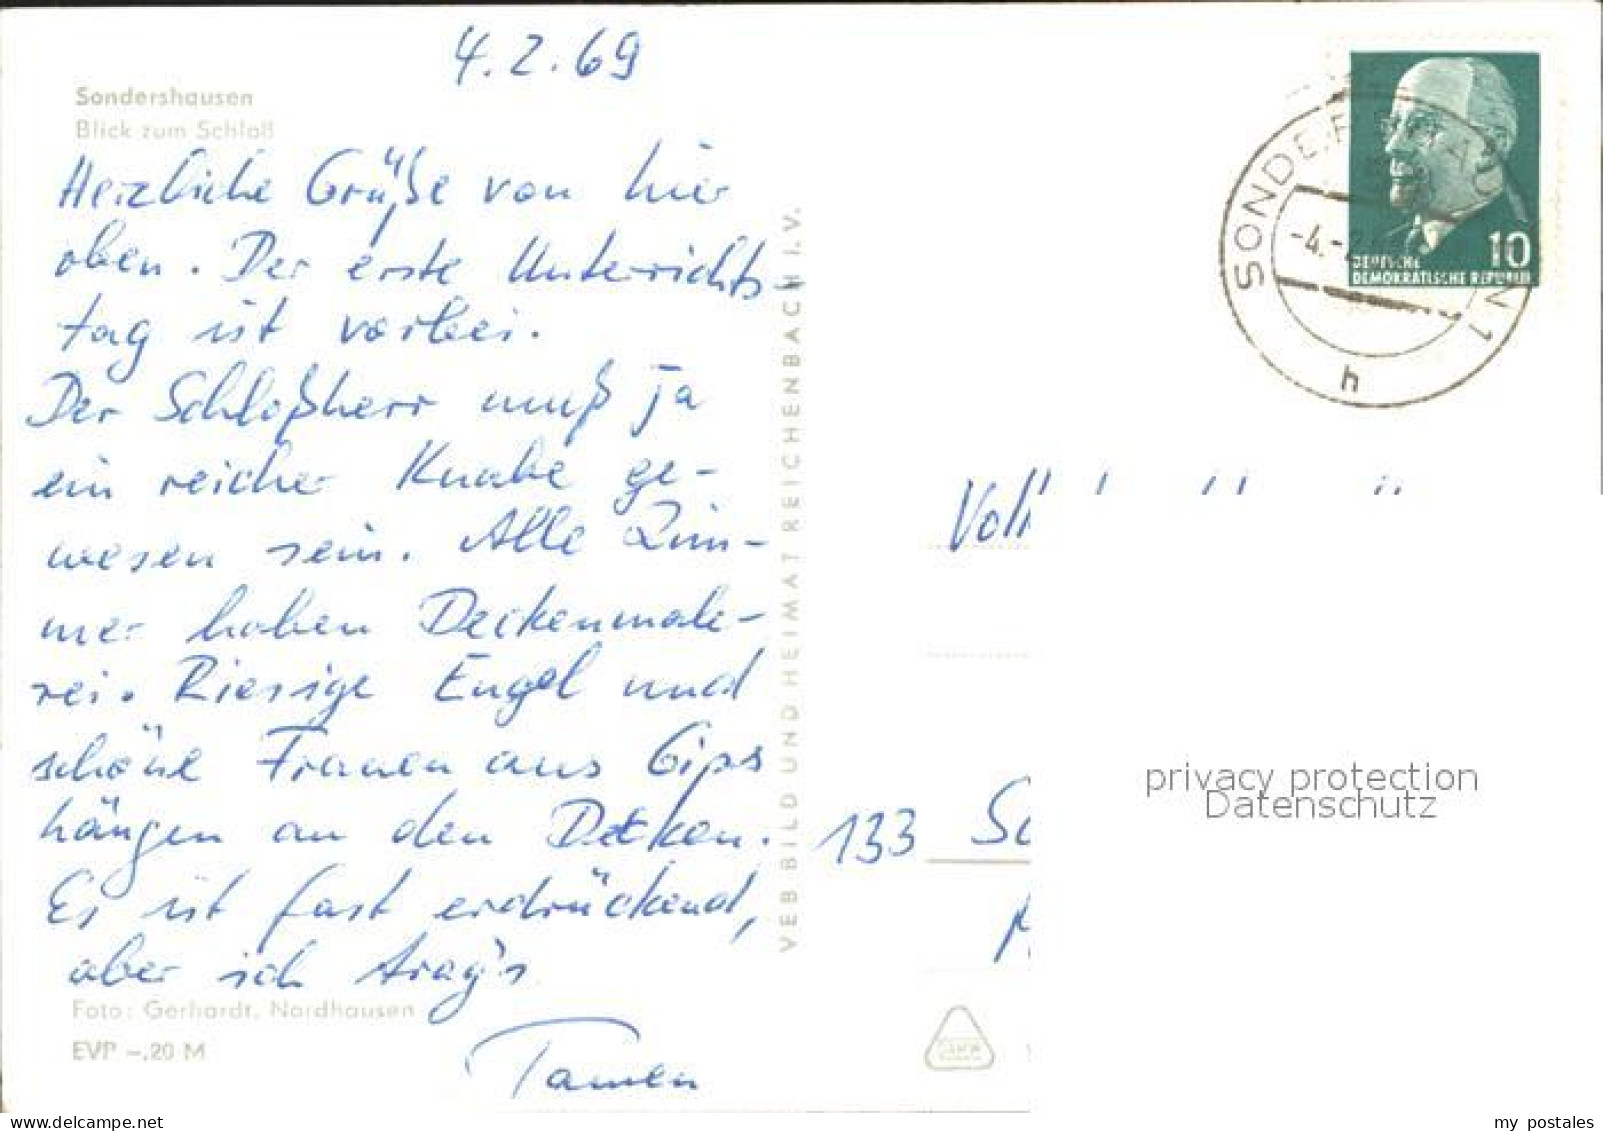 4.2.69
Sondershausen
Blick zum Schloß
Herzliche Grüße von hier
oben. Der erste Unterrichts-
tag ist vorbei.
Der Schloßherr muß ja
ein reicher Knabe ge-
wesen sein. Alle Zim-
mer haben Deckenmale-
rei. Riesige Engel und
schöne Frauen aus Gips
hängen an den Decken.
Es ist fast erdrückend,
aber ich trag's.
Foto: Gerhardt, Nordhausen
EVP –,20 M
VEB BILD UND HEIMAT REICHENBACH I. V.
10
DEUTSCHE
DEMOKRATISCHE REPUBLIK
SONDERSHAUSEN 1
-4.-2
h
133
privacy protection
Datenschutz
my postales